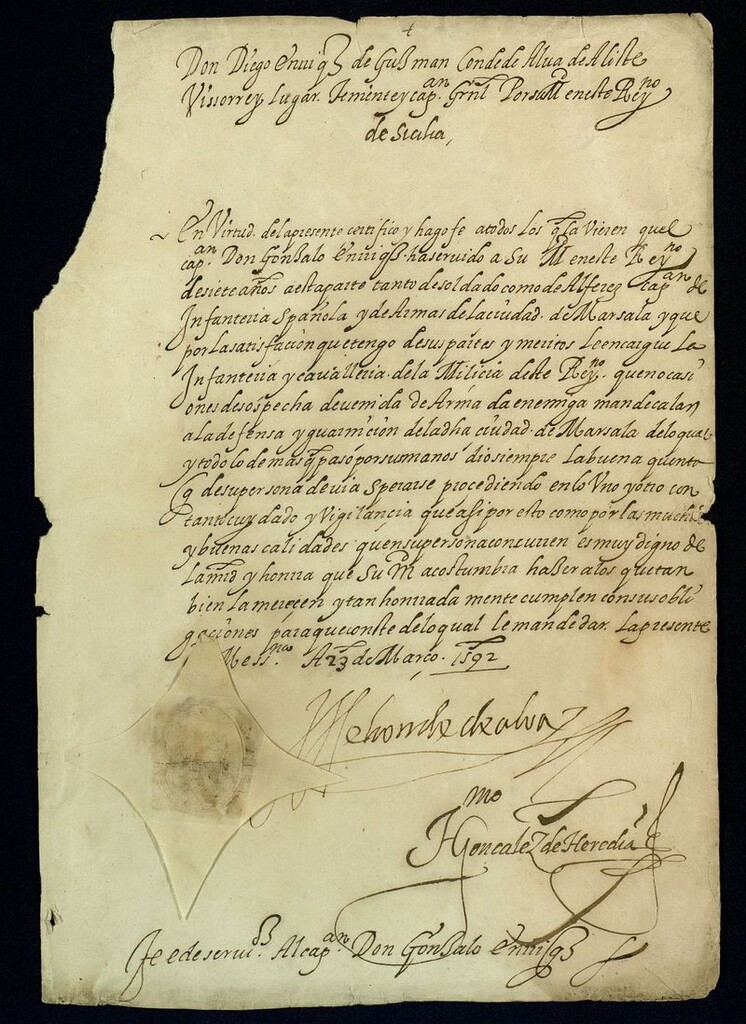 Don Diego Enrriqz de Guzman Conde de Alva de Aliste
Vissorrey Lugar Teniente y capan Grnl Por su Md en este Reyno
de Sicilia,
En Virtud de la presente certifico y hago fe a todos los q la Vieren que el
capan Don Gonzalo Enrriqz ha seruido a Su Md en este Reyno
de siete años a esta parte tanto de soldado como de Alferez capan de
Infanteria Española y de Armas de la ciudad de Marsala y que
por la satisfaçion que tengo de sus partes y meritos le encargue La
Infanteria y cavalleria de la Milicia deste Reyno que en ocasi
ones de sospecha de venida de Armada enemiga mande calar
a la defensa y guarniçion de la dha ciudad de Marsala de lo qual
y todo lo demas q passó por sus manos dio siempre la buena quenta
q de su persona deuia Sperarse procediendo en lo Vno y otro con
tanto cuydado y Vigilançia que assi por esto como por las muchas
y buenas calidades que en su persona concurren es muy digno de
La md y honrra que Su Md acostumbra hazer a los que tan
bien la mereçen y tan honrrada mente cumplen con sus obli
gaçiones para que conste de lo qual le mande dar La presente
Messna A 23 de Março 1592
el conde de alva
Hmo Gonçalez de Heredia
Fee de serui. Al capan Don Gonzalo Enrriqz